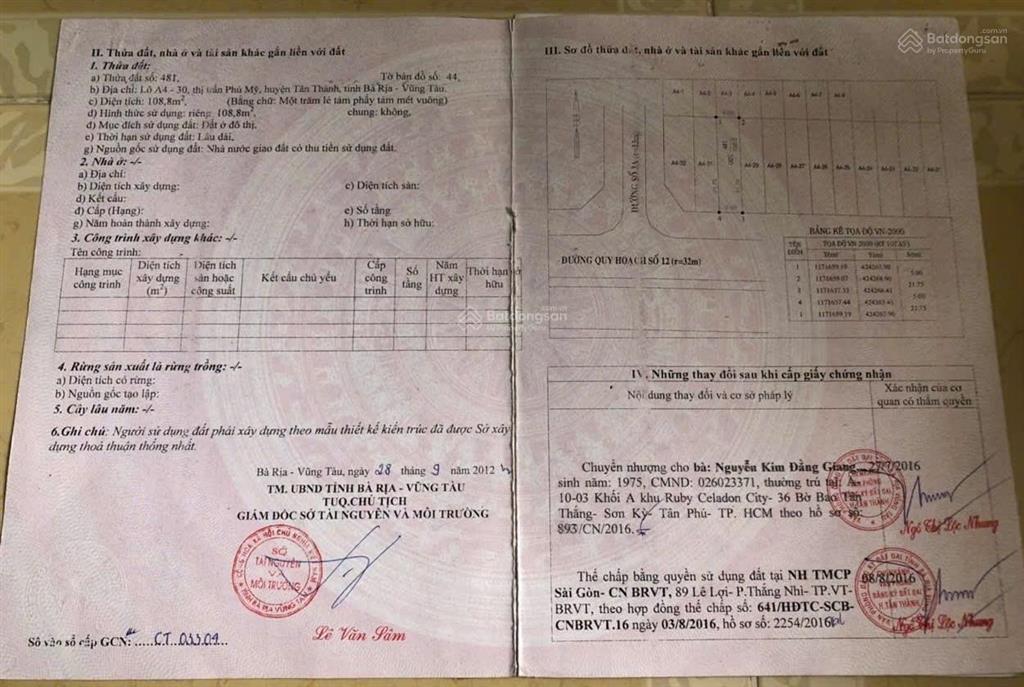 II. Thửa đất, nhà ở và tài sản khác gắn liền với đất
1. Thửa đất:
a) Thửa đất số: 481, Tờ bản đồ số: 44,
b) Địa chỉ: Lô A4 - 30, thị trấn Phú Mỹ, huyện Tân Thành, tỉnh Bà Rịa - Vũng Tàu.
c) Diện tích: 108,8m², (Bằng chữ: Một trăm lẻ tám phẩy tám mét vuông)
d) Hình thức sử dụng: riêng: 108,8m², chung: không,
đ) Mục đích sử dụng đất: Đất ở đô thị.
e) Thời hạn sử dụng đất: Lâu dài.
g) Nguồn gốc sử dụng đất: Nhà nước giao đất có thu tiền sử dụng đất.
2. Nhà ở: -/-
a) Địa chỉ:
b) Diện tích xây dựng: c) Diện tích sàn:
d) Kết cấu:
đ) Cấp (Hạng): e) Số tầng
g) Năm hoàn thành xây dựng: h) Thời hạn sở hữu:
3. Công trình xây dựng khác: -/-
Tên công trình:
Hạng mục công trình
Diện tích xây dựng (m²)
Diện tích sàn hoặc công suất
Kết cấu chủ yếu
Cấp công trình
Số tầng
Năm HT xây dựng
Thời hạn sở hữu
4. Rừng sản xuất là rừng trồng: -/-
a) Diện tích có rừng:
b) Nguồn gốc tạo lập:
5. Cây lâu năm: -/-
6.Ghi chú: Người sử dụng đất phải xây dựng theo mẫu thiết kế kiến trúc đã được Sở xây
dựng thoả thuận thống nhất.
Bà Rịa - Vũng Tàu, ngày 28 tháng 9 năm 2012
TM. UBND TỈNH BÀ RỊA - VŨNG TÀU
TUQ.CHỦ TỊCH
GIÁM ĐỐC SỞ TÀI NGUYÊN VÀ MÔI TRƯỜNG
SỞ
TÀI NGUYÊN
VÀ
MÔI TRƯỜNG
Lê Văn Sâm
Số vào sổ cấp GCN: CT 03309
Batdongsan.com.vn
by PropertyGuru
III. Sơ đồ thửa đất, nhà ở và tài sản khác gắn liền với đất
Batdongsan.com.vn
by PropertyGuru
ĐƯỜNG SỐ 1A
ĐƯỜNG QUY HOẠCH SỐ 12 (r=32m)
BẢNG KÊ TỌA ĐỘ VN-2000
TÊN ĐIỂM
1 1171659.19 424263.90
5.00
21.75
5.00
21.75
1 1171659.19 424263.90
IV. Những thay đổi sau khi cấp giấy chứng nhận
Nội dung thay đổi và cơ sở pháp lý
Xác nhận của cơ quan có thẩm quyền
Chuyển nhượng cho bà: Nguyễn Kim Đằng Giang 27/7/2016
sinh năm: 1975, CMND: 026023371, thường trú tại: A-
10-03 Khối A khu Ruby Celadon City- 36 Bờ Bao Tân
Thắng- Sơn Kỳ- Tân Phú- TP. HCM theo hồ sơ số:
893/CN/2016.
Ngô Thị Lộc Nhung
Thế chấp bằng quyền sử dụng đất tại NH TMCP 08/8/2016
Sài Gòn- CN BRVT, 89 Lê Lợi- P.Thắng Nhì- TP.VT-
BRVT, theo hợp đồng thế chấp số: 641/HĐTC-SCB-
CNBRVT.16 ngày 03/8/2016, hồ sơ số: 2254/2016
Ngô Thị Lộc Nhung